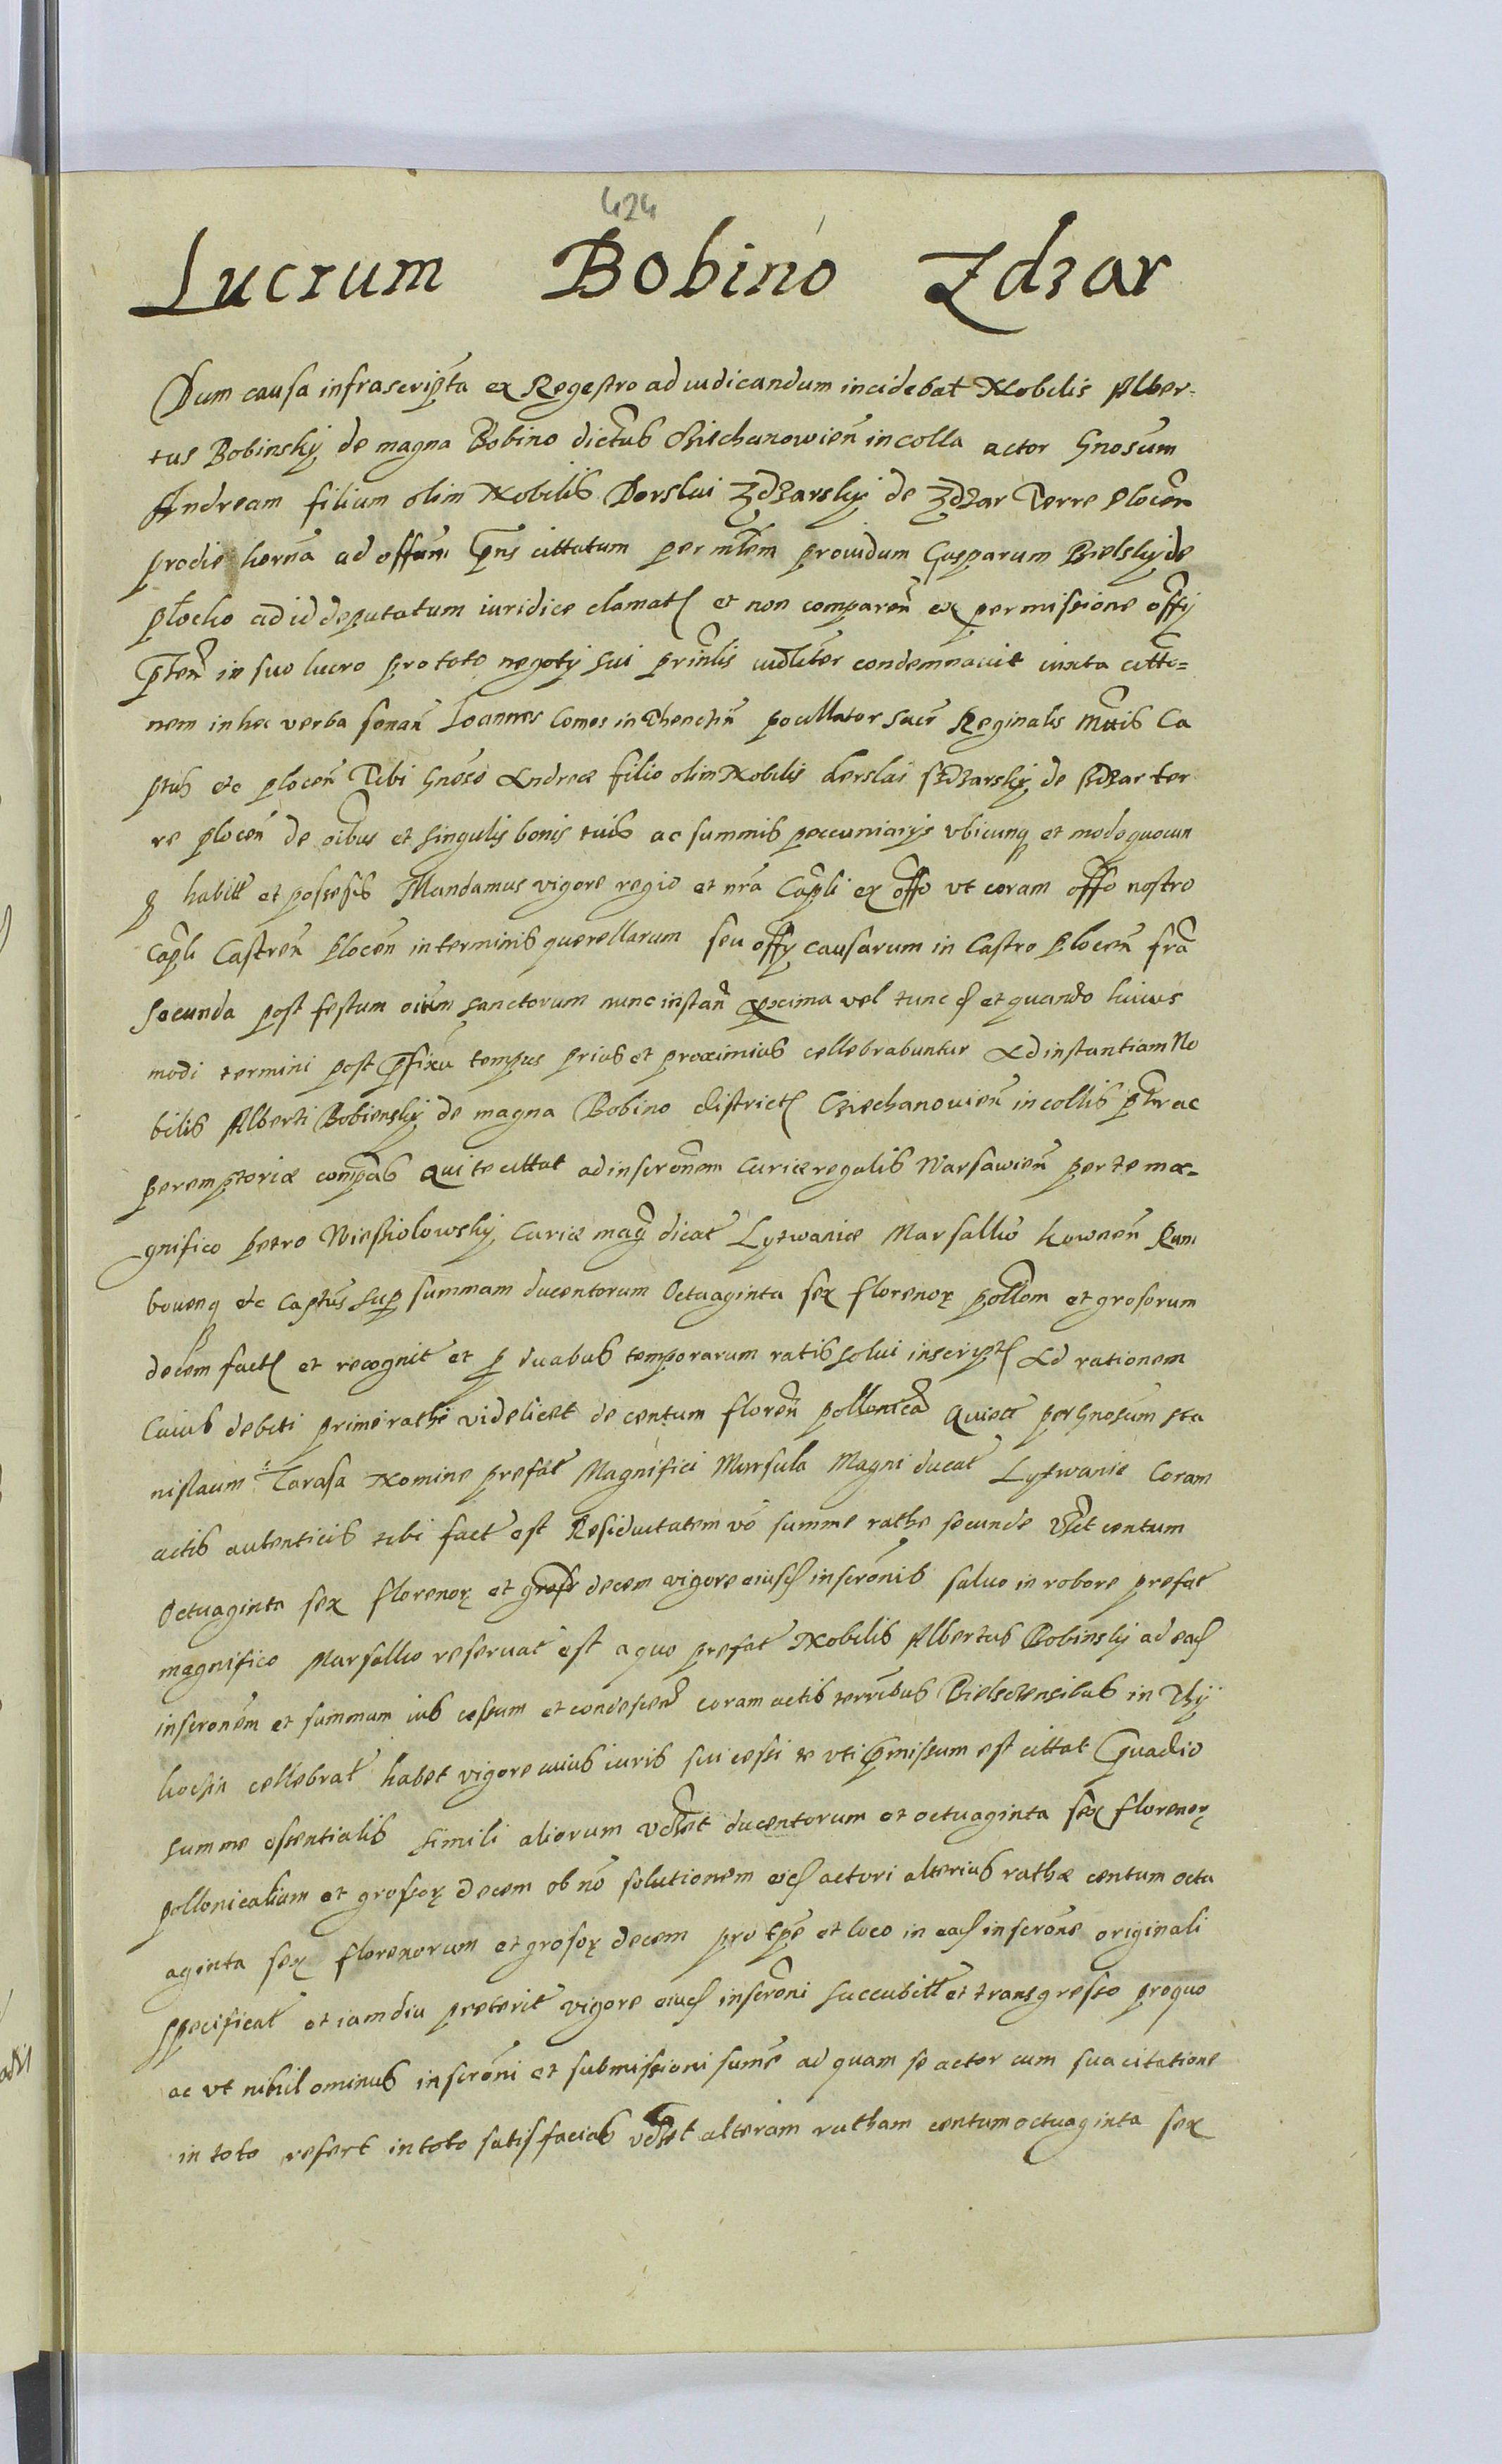 424
Lucrum Bobino Zdzar
Dum causa infrascripta ex Regestro ad iudicandum incidebat Nobilis Alber-
tus Bobinskij de magna Bobino dictus Cziechanowien̄ incolla actor Gnosum
Andream filium olim Nobilis Derslai Zdzarskij de Zdzar Terre Plocen̄
pro die herna ad offum p̄ns cittatum per mltem prouidum Gasparum Bielskij de
Plocko ad id deputatum iuridice clamat et non comparen̄ ex permissione offij
p̄ten̄ in suo lucro pro toto negotij sui prinlis iudliter condemnauit iuxta citto-
nem in hec verba sonan̄ Ioannes Comes in Thenczin pocillator Sacre Reginalis Mttis Ca
ptus etc plocen̄ Tibi Gnoso Andreæ filio olim Nobilis Derslai Zdzarskij de Zdzar ter
re plocen̄ de oibus et singulis bonis tuis ac summis peccuniarijs vbicunq et modo quocun
q habitt et possessis Mandamus vigore regio et nrā Capli ex offo vt coram offo nostro
Capli Castren̄ plocen̄ in terminis querellarum seu offij causarum in Castro plocen̄ fra
secunda post festum oium sanctorum nunc instan̄ proxima vel tunc et quando huius
modi termini post p̄fixu tempus prius et proximius cellebrabuntur Ad instantiam No
bilis Alberti Bobienskij de magna Bobino district Cziechanouien̄ incollis p̄tr ac
peremptoriæ compās Qui te cittat ad inscronem Curiæ regalis Warsawien̄ per te ma-
gnifico Petro Wiesiolowskij Curiæ mag dicat Lytwaniæ Marsallco kownen̄ Rum
bouenq etc Captus sup summam ducentorum Octuaginta sex florenor̨ pollom et grosorum
decem fact et recognit et p̱ duabus temporarum ratis solui inscript Ad rationem
Cuius debiti prime rathe videlicet de centum floren̄ pollonica Quiett per Gnosum Sta
nislaum Tarasa Nomine prefat Magnifici Marsula Magni ducat Lytwanie Coram
actis autenticis tibi fact est Residuitatem vō summe rathe secunde vdlt centum
Octuaginta sex florenor̨ et gross decem vigore eiusd inscronis saluo in robore prefat
magnifico Marsallco reseruat est a quo prefat Nobilis Albertus Bobinskij ad eas
inscronem et summam ius cessum et condescen̄ coram actis terribus Bielscensibus in Thij
kochin cellebrat habet vigore cuius iuris sui cessi te vti p̄missum est cittat Quadio
summe essentialis simili aliorum vdlet ducentorum et octuaginta sex florenor̨
pollonicalium et grossor̨ decem ob nō solutionem eid actori alterius rathæ centum octu
aginta sex florenorum et grosor̨ decem pro tpe et loco in ead inscrone originali
specificat et iamdiu preterit vigore eiusd inscroni succubitt et transgresso pro quo
ac vt nihil ominus inscroni et submissioni sume ad quam se actor cum sua citatione
in toto refert in toto satisfacias vdlet alteram ratham centum octuaginta sex